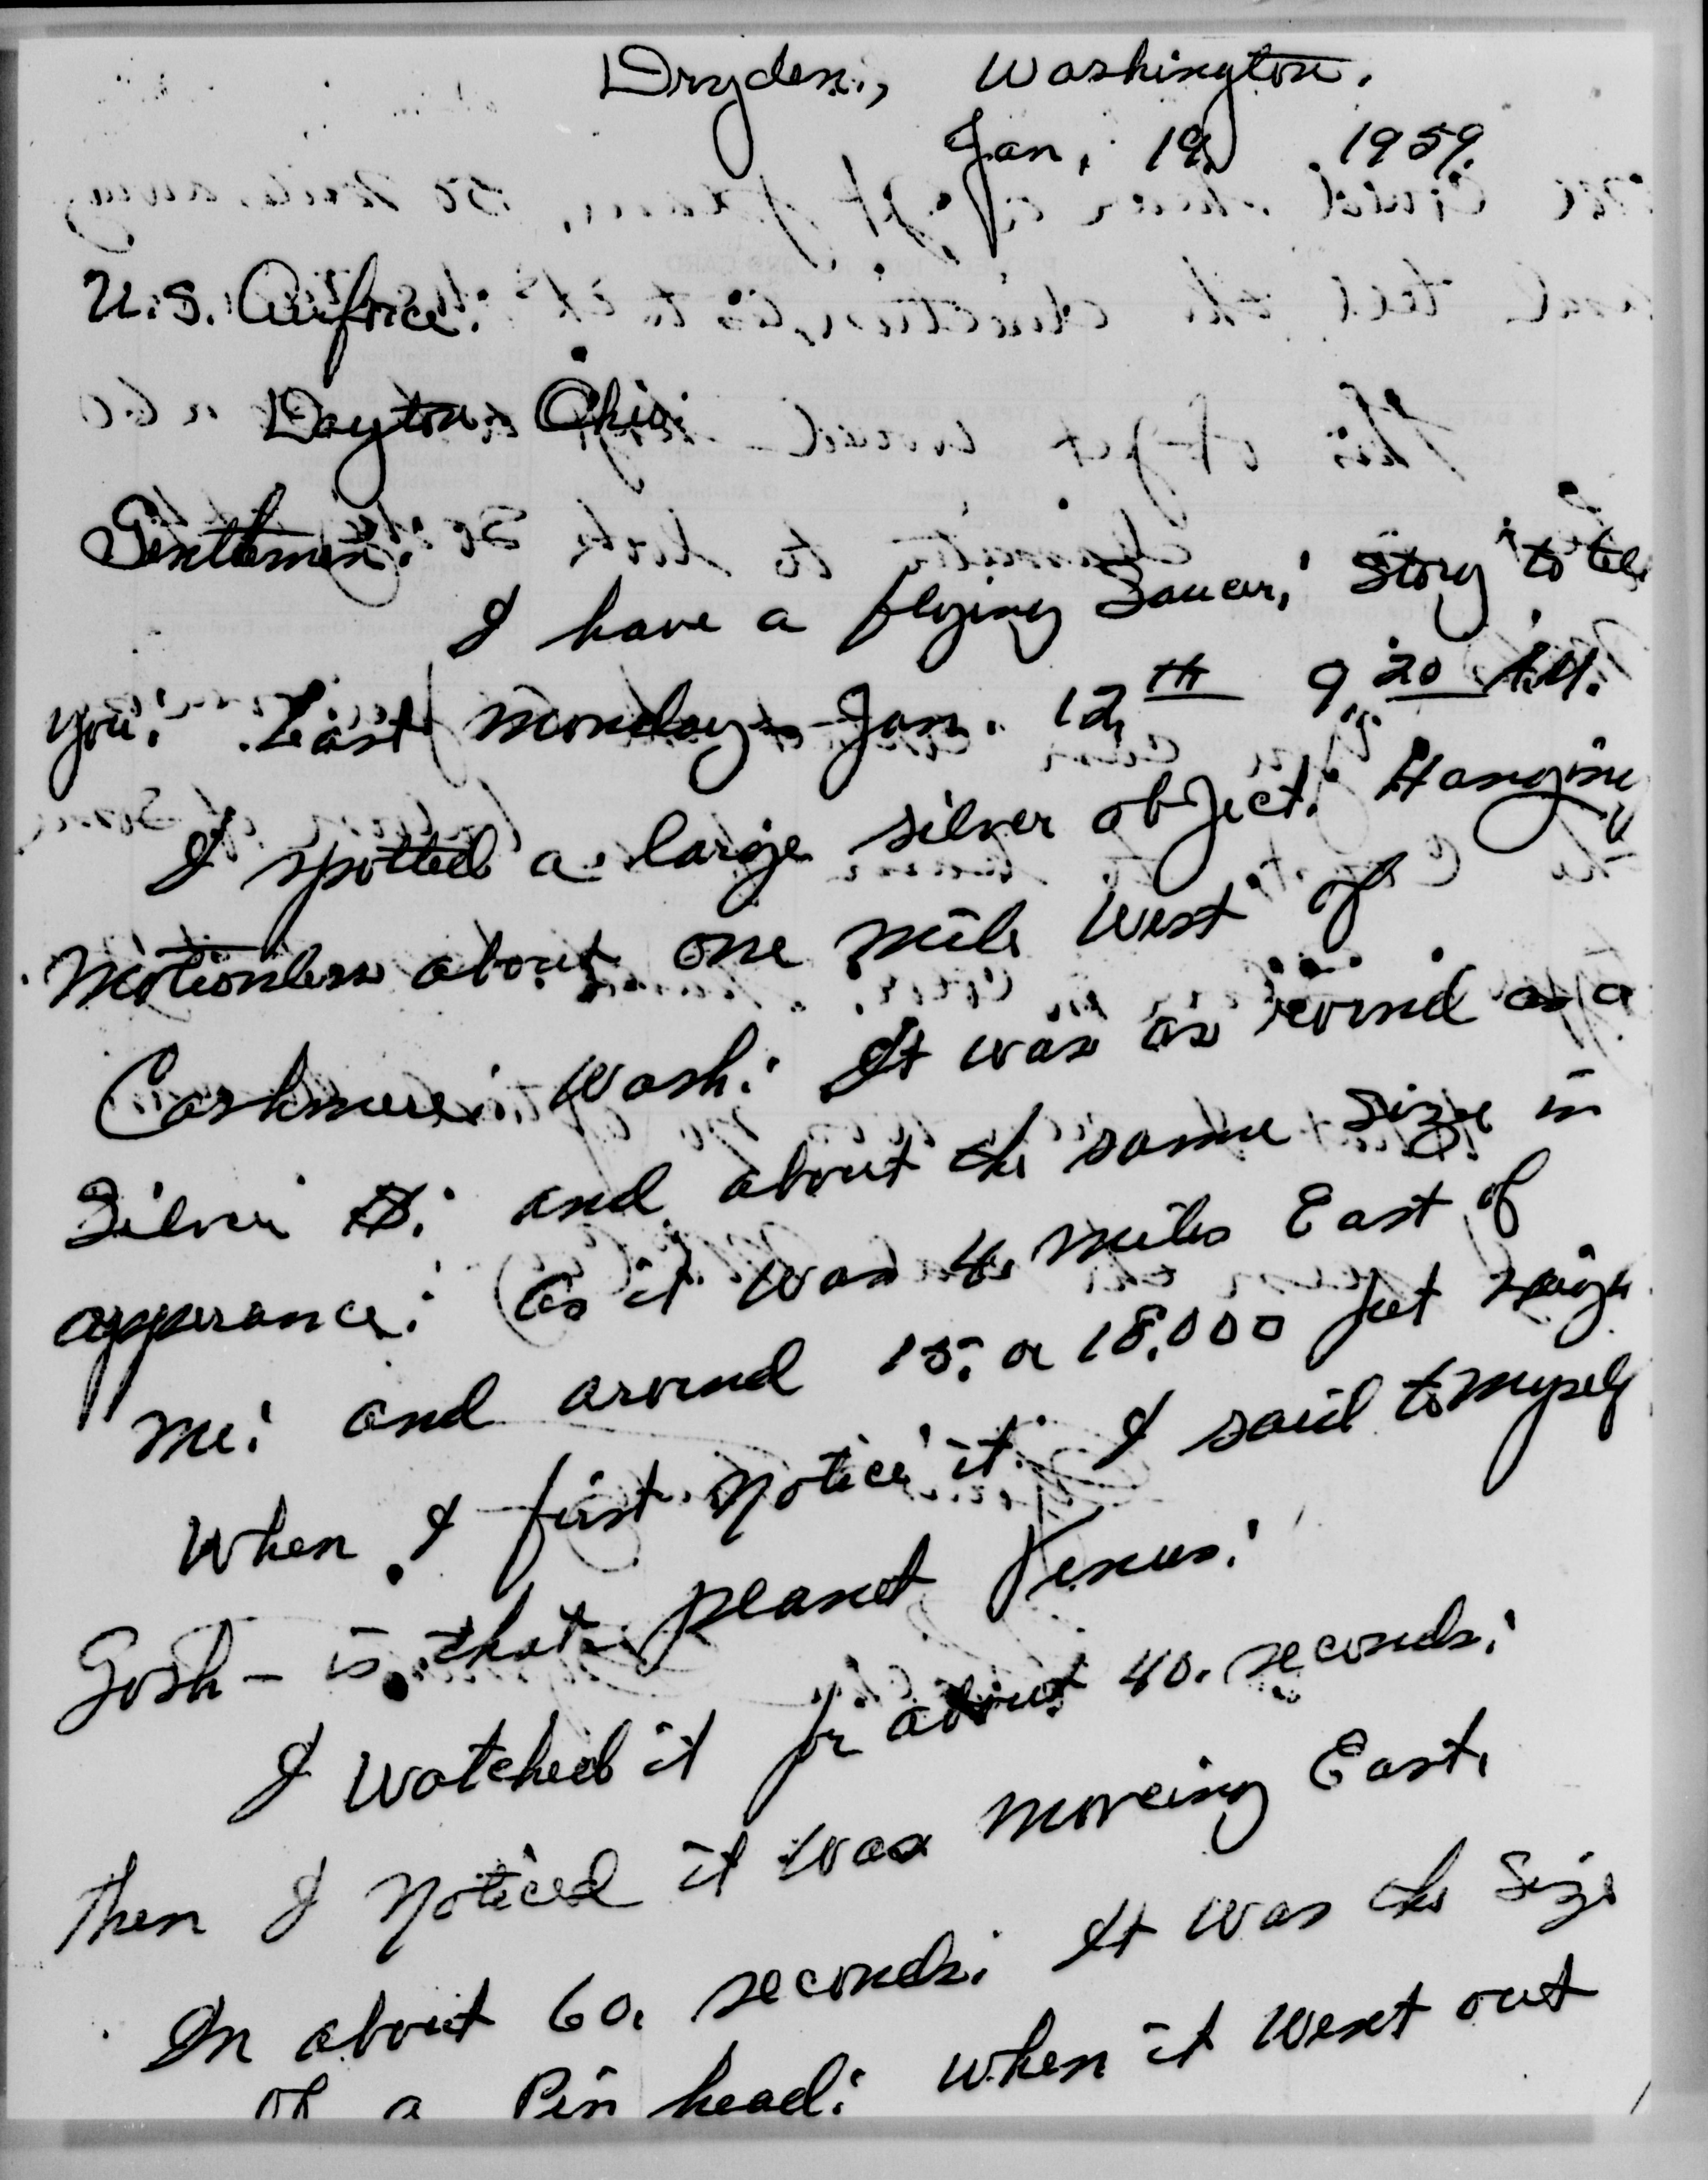 Dryden, Washington.
Jan, 19, 1959.
U.S. Airforce:
Dayton, Ohio:
Gentlemen:
I have a flying Saucer, story to tell
you: Last Monday - Jan. 12th 9,20 A.M.
I spotted a large silver object: Hanging
Motionless about one mile West of
Cashmere, Wash: It was as round as a
Silver $: and about the same size in
apperance: (as it was 4, miles East of
me: and around 15, or 18,000 feet
When I first notice it: I said to myself
Gosh - is that planet Venus:
I watched it for about 40. seconds:
Then I noticed it was moveing East,
In about 60, seconds: It was the size
of a Pin head: when it went out